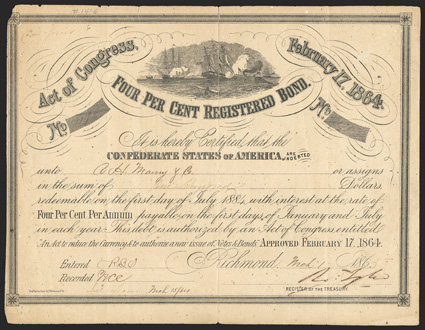 Act of Congress,
February 17, 1864.
FOUR PER CENT REGISTERED BOND.
No
No
It is hereby Certified that the
CONFEDERATE STATES OF AMERICA, ARE INDEBTED
unto R. H. Maury & Co or assigns
in the sum of Dollars
redeemable on the first day of July 1884, with interest at the rate of
Four Per Cent Per Annum payable on the first days of January and July
in each year. This debt is authorized by an Act of Congress entitled
An Act to reduce the Currency & to authorize a new issue of Notes & Bonds. APPROVED FEBRUARY 17, 1864.
Entered
Richmond, 186
Recorded
REGISTER OF THE TREASURY